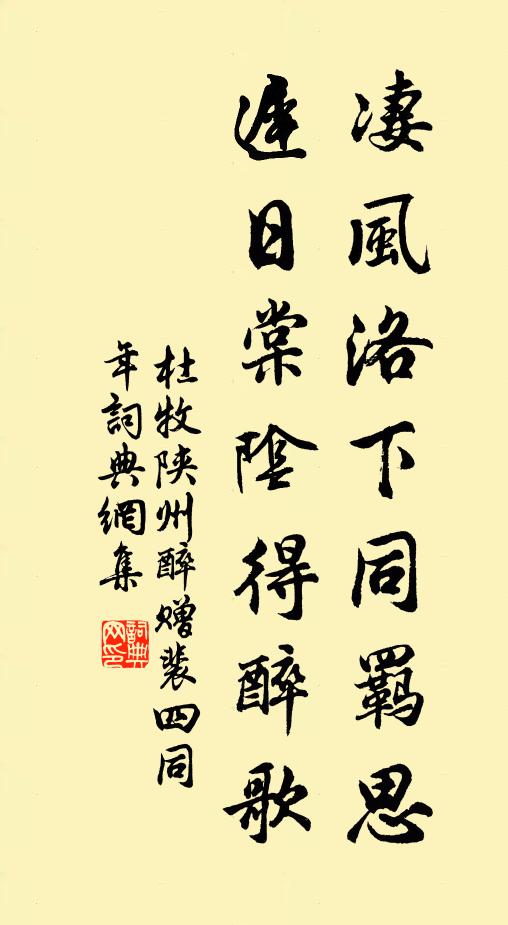 凄風洛下同羈思
遲日棠陰得醉歌
杜牧陝州醉贈裴四同
年詞典網集
詞典
网印